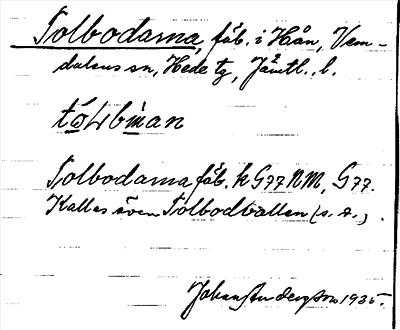 Tolbodarna, fäb. i Hån, Vem-
dalens sn, Hede tg, Jämtl. l.
Tolbodarna fäb. k G77 NM, G77.
Kallas även Tolbodvallen (s. d.).
Johan Anderzson 1935.